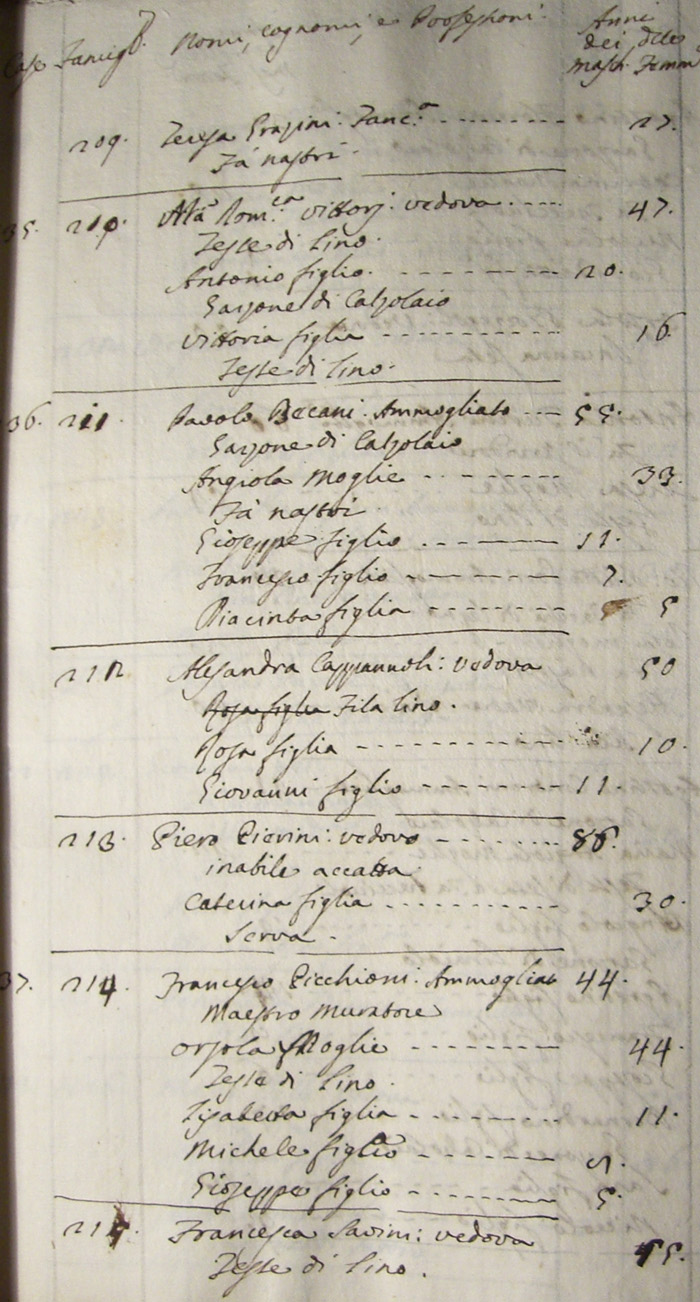 Case Famigl. Nomi, cognomi, e Professioni. Anni
dei delle
Masch. Femm
209. Teresa Grazini. Fanc.a 27.
Fà nastri.
35. 210. M.a Dom.ca Vittorj: vedova. 47.
Tesse di lino.
Antonio figlio. 20.
Garzone di Calzolaio
Vittoria figlia 16
Tesse di lino.
36. 211 Paolo Becani. Ammogliato 55.
Garzone di Calzolaio
Angiola Moglie 33.
Fà nastri.
Gioseppe figlio 11.
Francesco figlio 7.
Giacinta figlia 5
212 Alesandra Cappannoli: vedova 50
Rosa figlia Fila lino.
Rosa figlia 10.
Giovanni figlio 11.
213. Piero Pierini: vedovo 86.
inabile accatta.
Caterina figlia 30.
Serva.
37. 214 Francesco Picchioni: Ammogliato 44.
Maestro Muratore
Orsola Moglie 44.
Tesse di Lino.
Lisabetta figlia 11.
Michele figlio 9.
Gioseppe figlio 5.
215 Francesca Savini: vedova 45.
Tesse di Lino.